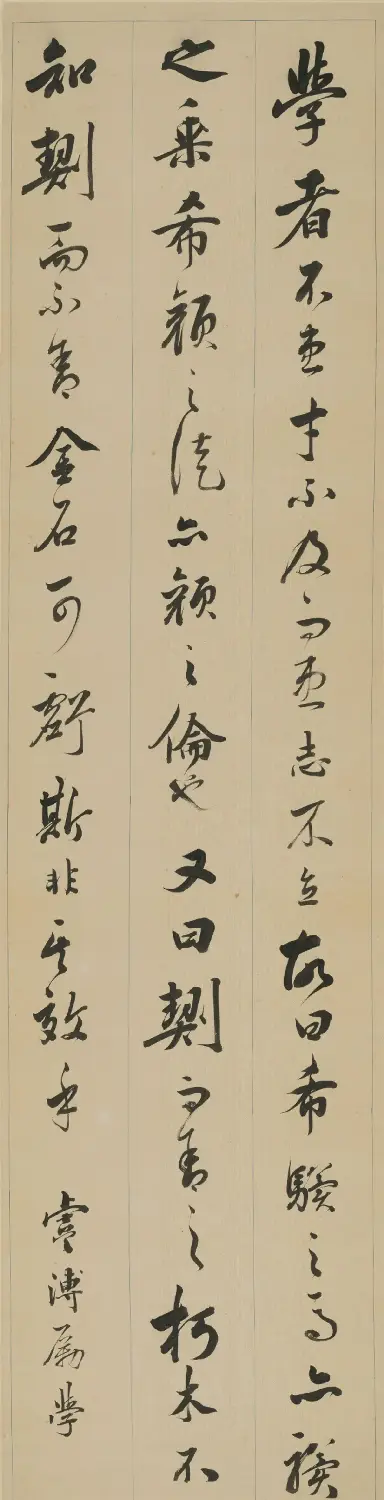 學者不患才不及而患志不立故曰希驥之馬亦驥
之乘希顏之徒亦顏之倫也又曰契而舍之朽木不
知契而不舍金石可虧斯非其效乎 虞溥厲學